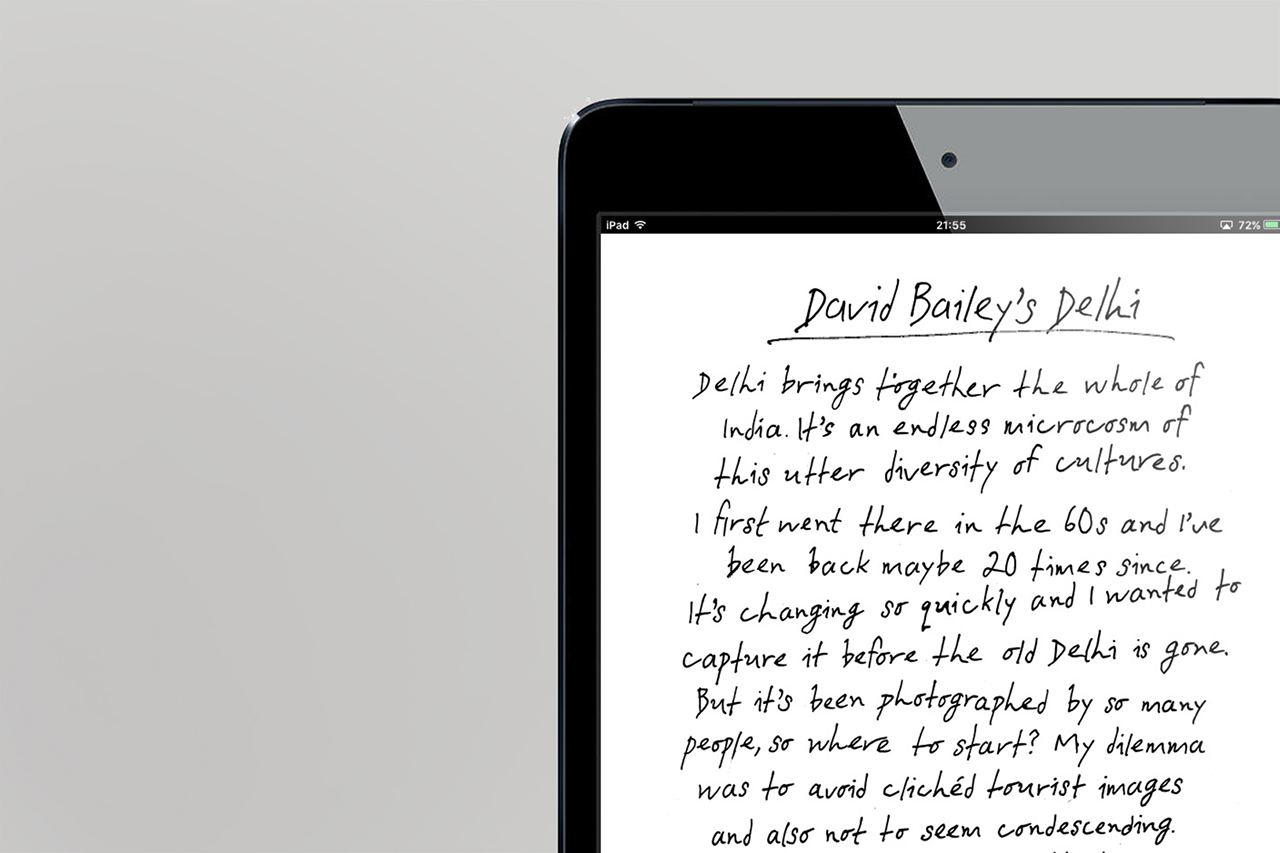 iPad 21:55 72%
David Bailey's Delhi
Delhi brings together the whole of
India. It's an endless microcosm of
this utter diversity of cultures.
I first went there in the 60s and I've
been back maybe 20 times since.
It's changing so quickly and I wanted to
capture it before the old Delhi is gone.
But it's been photographed by so many
people, so where to start? My dilemma
was to avoid clichéd tourist images
and also not to seem condescending.